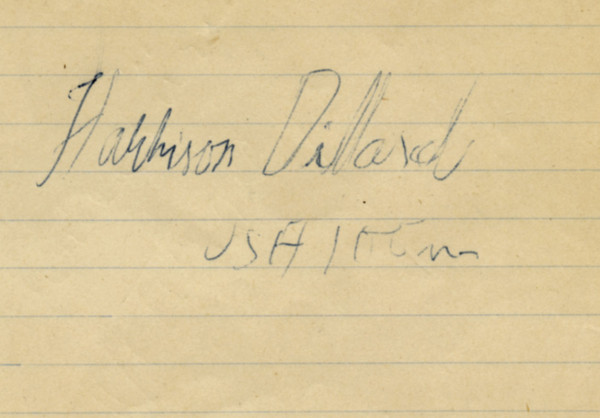 Harrison Dillard
USA 100 m